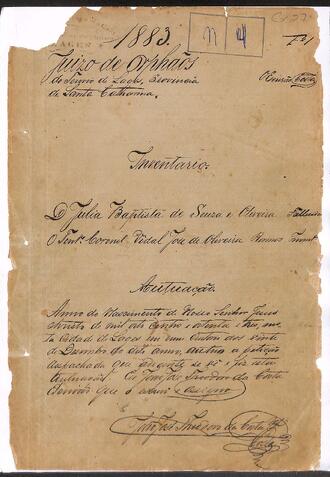 1883
n 4
Juizo de Orphãos
do Termo de Lages, Provincia
de Santa Catharina.
O Escrivão Costa
Inventario.
D. Julia Baptista de Souza e Oliveira Fallecida
O Tent.e Coronel Vidal José de Oliveira Ramos Invent.
Autuação.
Anno do Nascimento de Nosso Senhor Jesus
Christo de mil oito centos e oitenta e tres, nes
ta Cidade de Lages em meu Cartorio aos vinte
de Dezembro do dito anno, autuo a petição
despachada que adiante se vê e fiz esta
Autuação. Eu José Theodoro da Costa
Escrivão que o escrevi e assigno
João José Theodoro da Costa